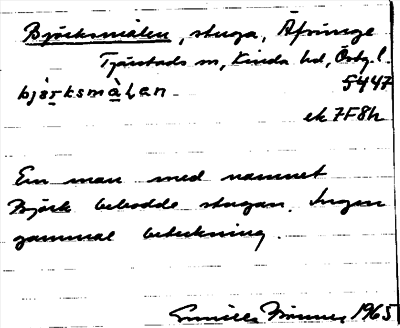 Björksmålen, stuga, Äfringe
Tjärstads sn, Kinda hd, Östg.l.
bjö̀rksmå̀lan 5447
ek 7F8h
En man med namnet
Björk bebodde stugan. Ingen
gammal beteckning.
Gunilla 1965